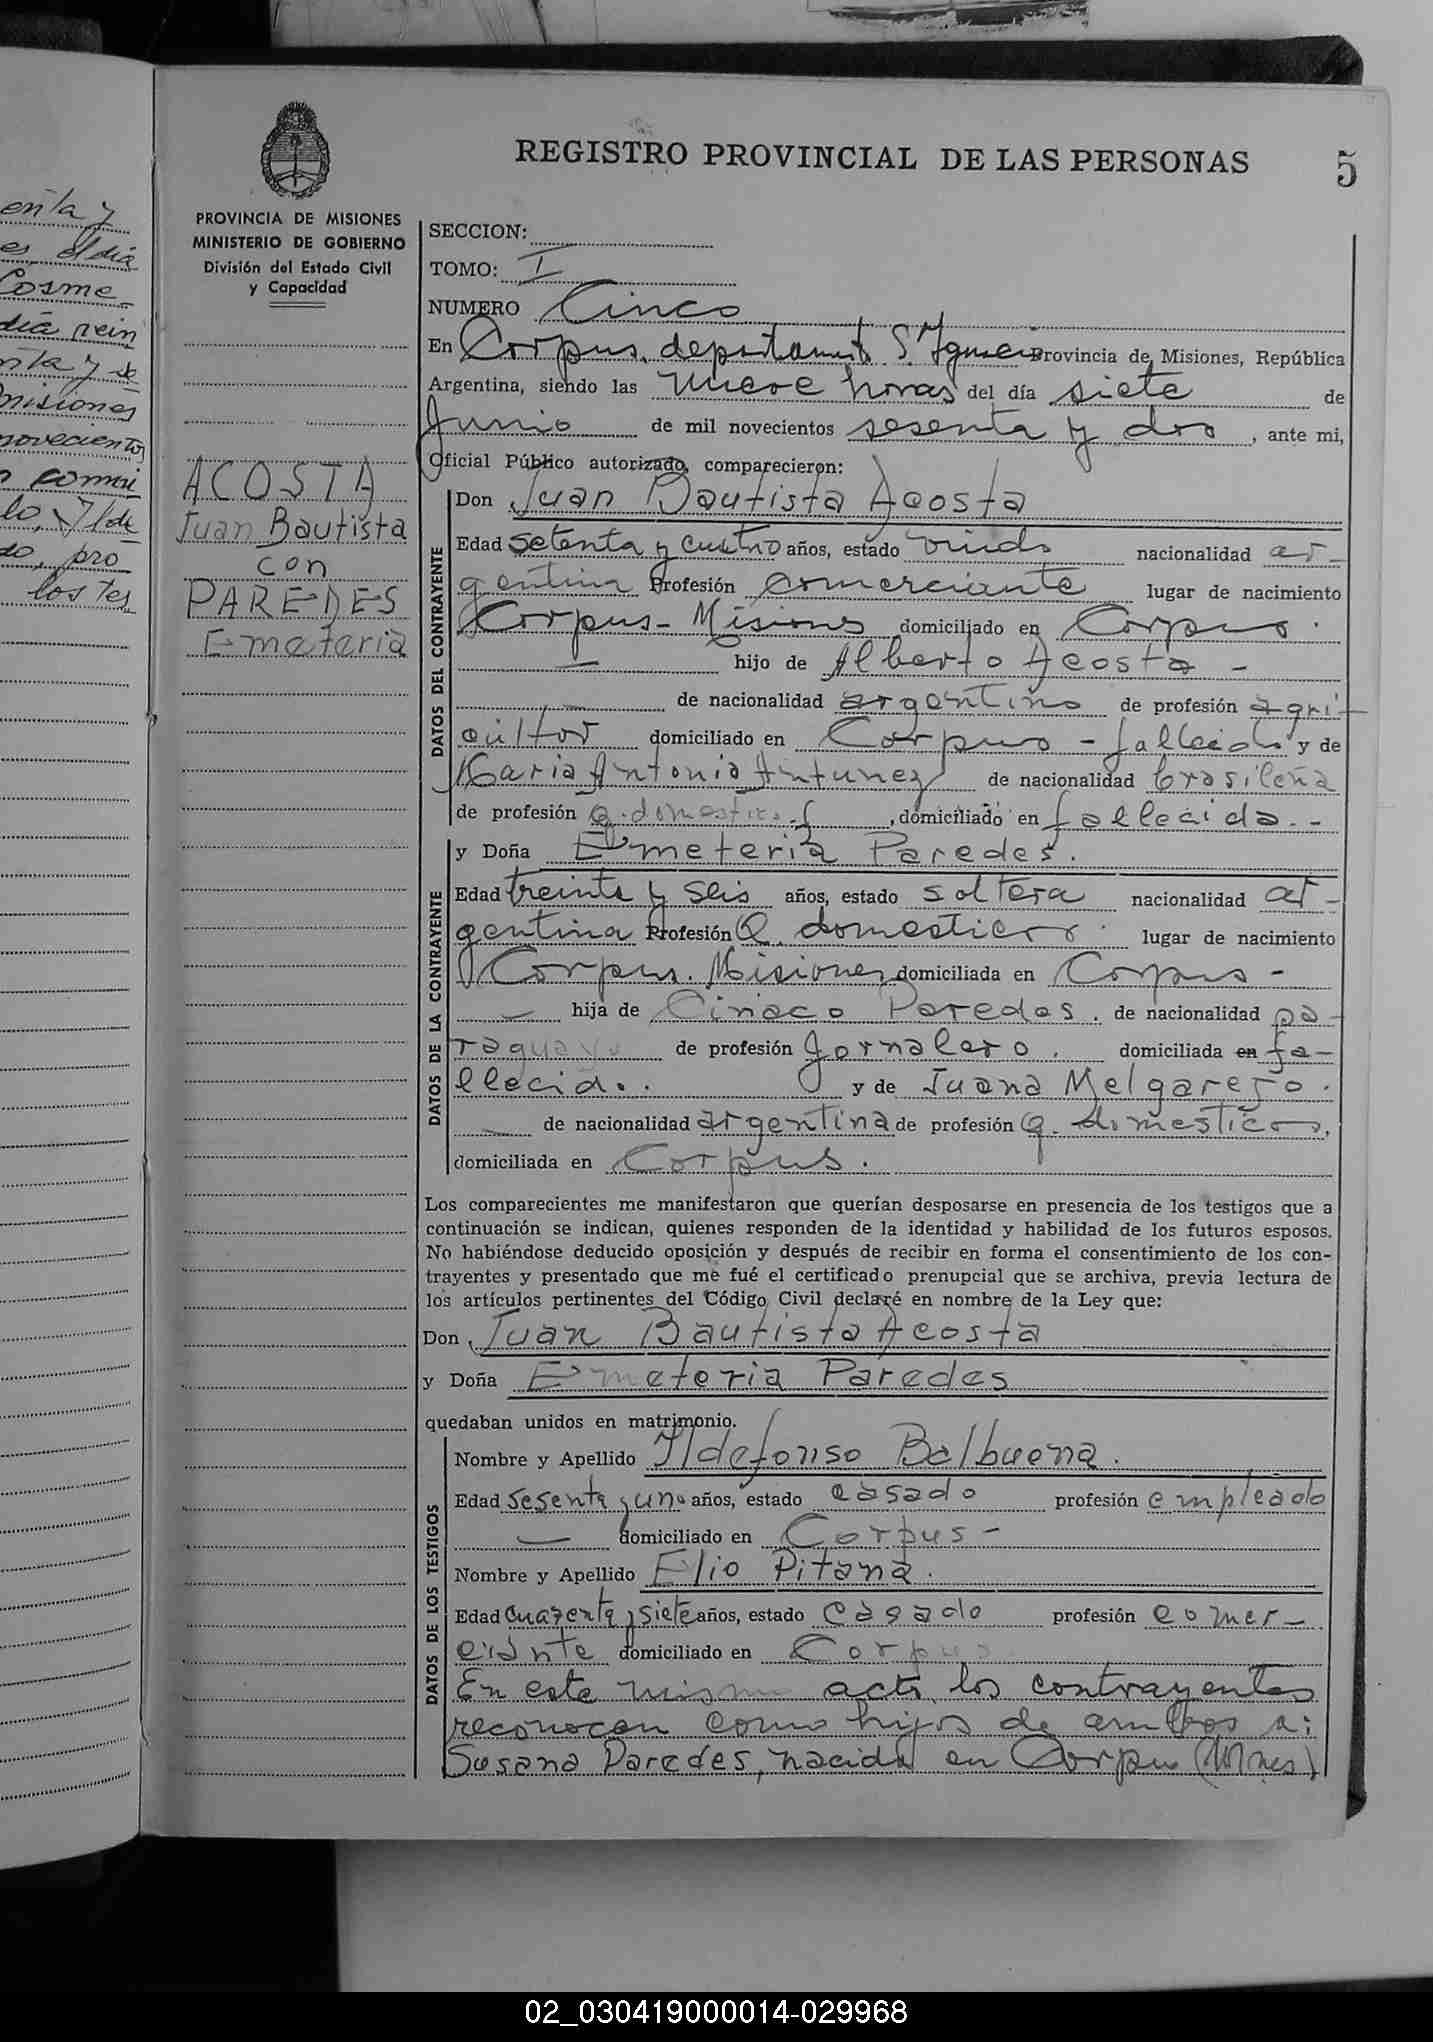 enta y
es, el día
Cosme
día vein
nta y se
misiones
novecientos
lo, Ilde
do, pro
los tes
REGISTRO PROVINCIAL DE LAS PERSONAS
5
PROVINCIA DE MISIONES
MINISTERIO DE GOBIERNO
División del Estado Civil
y Capacidad
ACOSTA
Juan Bautista
con
PAREDES
Emeteria
SECCION:
TOMO: I
NUMERO Cinco
En Corpus, departamento S. Ignacio Provincia de Misiones, República
Argentina, siendo las nueve horas del día siete de
Junio de mil novecientos sesenta y dos, ante mi,
Oficial Público autorizado, comparecieron:
DATOS DEL CONTRAYENTE
Don Juan Bautista Acosta
Edad setenta y cuatro años, estado viudo nacionalidad ar-
gentina Profesión comerciante lugar de nacimiento
Corpus - Misiones domiciliado en Corpus.
— hijo de Alberto Acosta -
— de nacionalidad argentino de profesión agri-
cultor domiciliado en Corpus - fallecido y de
Maria Antonia Antunez de nacionalidad brasileña
de profesión q. domesticos, domiciliado en fallecida. -
DATOS DE LA CONTRAYENTE
y Doña Emeteria Paredes.
Edad treinta y seis años, estado soltera nacionalidad ar-
gentina Profesión Q. domesticos lugar de nacimiento
Corpus. Misiones domiciliada en Corpus -
— hija de Ciriaco Paredes. de nacionalidad pa-
raguayo de profesión Jornalero. domiciliada en fa-
llecido. y de Juana Melgarejo.
— de nacionalidad argentina de profesión q. domesticos,
domiciliada en Corpus.
Los comparecientes me manifestaron que querían desposarse en presencia de los testigos que a
continuación se indican, quienes responden de la identidad y habilidad de los futuros esposos.
No habiéndose deducido oposición y después de recibir en forma el consentimiento de los con-
trayentes y presentado que me fué el certificado prenupcial que se archiva, previa lectura de
los artículos pertinentes del Código Civil declaré en nombre de la Ley que:
Don Juan Bautista Acosta
y Doña Emeteria Paredes
quedaban unidos en matrimonio.
DATOS DE LOS TESTIGOS
Nombre y Apellido Ildefonso Balbuena.
Edad sesenta y uno años, estado casado profesión empleado
— domiciliado en Corpus -
Nombre y Apellido Elio Pitana.
Edad cuarenta y siete años, estado casado profesión comer-
ciante domiciliado en Corpus
En este mismo acto los contrayentes
reconocen como hijos de ambos a:
Susana Paredes, nacida en Corpus (Mnes)
02_030419000014-029968